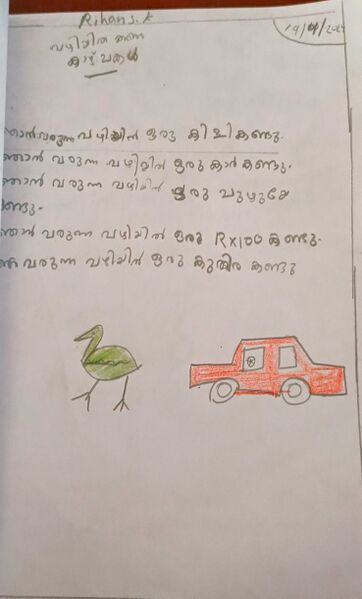 Rihan S.K
19/4/2024
വഴിയിൽ കണ്ട
കാഴ്ചകൾ
ഞാൻ വരുന്ന വഴിയിൽ ഒരു കിളി കണ്ടു.
ഞാൻ വരുന്ന വഴിയിൽ ഒരു കാർ കണ്ടു.
ഞാൻ വരുന്ന വഴിയിൽ ഒരു പുഴു
ഞാൻ വരുന്ന വഴിയിൽ ഒരു RX100 കണ്ടു.
വരുന്ന വഴിയിൽ ഒരു കുതിര കണ്ടു